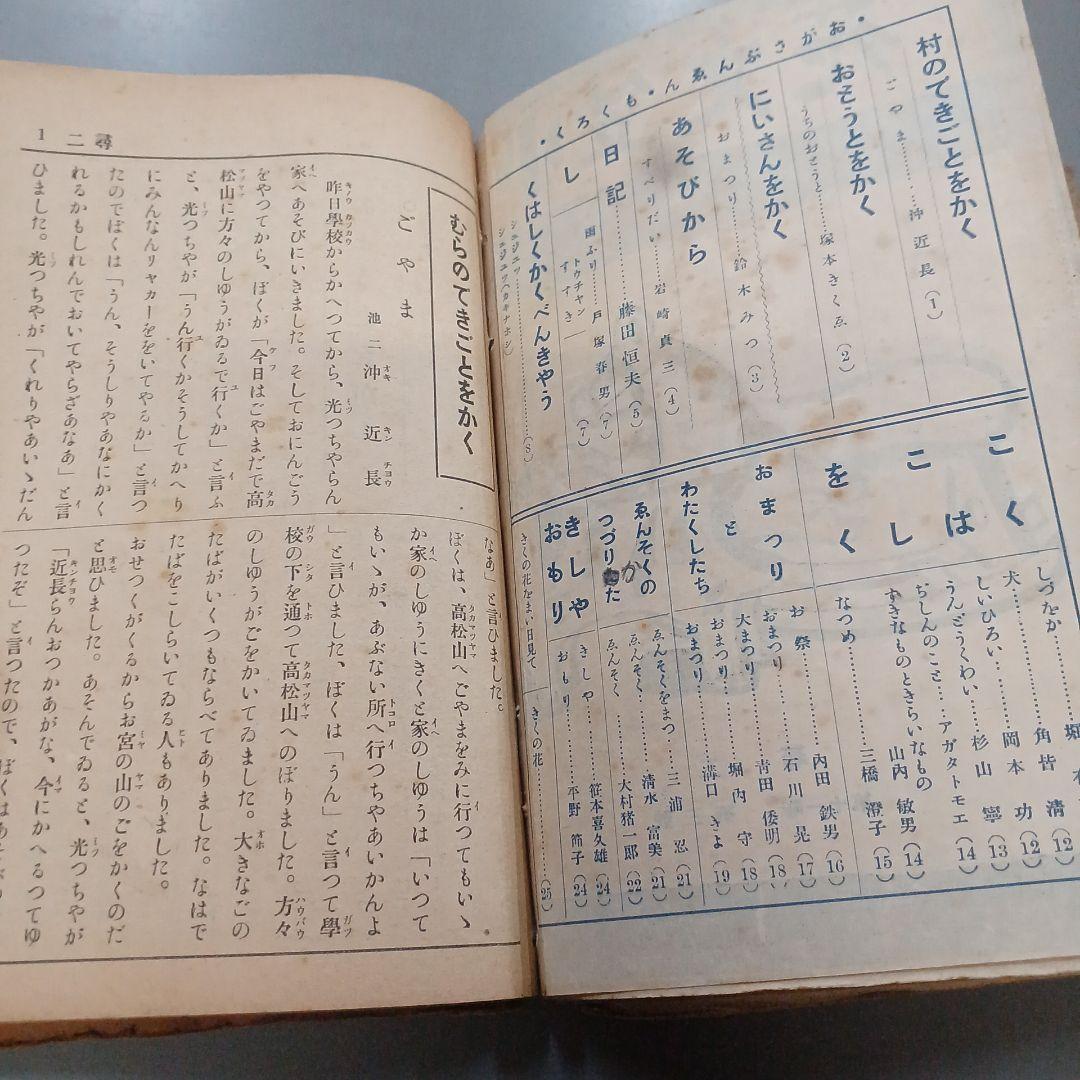 ・おがさぶんゑん・もくろく・
村のできごとをかく
ごやま………沖近長(1)
おとうとをかく
うちのおとうと………塚本きくゑ(2)
にいさんをかく
おまつり………鈴木みつ(3)
あそびから
すべりだい………岩崎貞三(4)
日記………藤田恒夫(5)
し
雨ふり………戸塚春男(7)
トウチヤン
すゝき………(7)
くはしくかくべんきやう
シユジユツ(カキナホシ)
シユジユツ………(8)
こくはしこをく
しづたか………堀
犬………角皆清(12)
しいひろい………岡本功(12)
うんどうくわい………杉山寧(13)
ぢしんのこと………アガタトモエ(14)
すきなものときらいなもの
山内敏男(14)
なつめ………三橋澄子(15)
おまつりとわたくしたち
お祭………内田鉄男(16)
おまつり………石川晃(17)
大まつり………青田倭明(18)
おまつり………堀内守(18)
おまつり………溝口きよ(19)
ゑんそくのつづりかた
ゑんそくをまつ………三浦忍(21)
ゑんそく………清水富美(21)
ゑんそく………大村猪一郎(22)
きしや
きしや………笹本喜久雄(24)
おもり
おもり………平野節子(24)
きくの花をまい日見て
きくの花………(25)
尋二 1
むらのてきごとをかく
ごやま
池二 沖近長
昨日學校からかへつてから、光つちやらん
家へあそびにいきました。そしておにんごう
をやつてから、ぼくが「今日はごやまだで高
松山に方々のしゆうがゐるで行くか」と言ふ
と、光つちやが「うん行くかそうしてかへり
にみんなんリヤカーををいてやるか」と言つ
たのでぼくは「うん、そうしりやあなにかく
れるかもしれんでおいてやらざあなあ」と言
ひました。光つちやが「くれりやあいゝだん
なあ」と言ひました。
ぼくは、高松山へごやまをみに行つてもいゝ
か家のしゆうにきくと家のしゆうは「いつて
もいゝが、あぶない所へ行つちやあいかんよ
」と言ひました、ぼくは「うん」と言つて學
校の下を通つて高松山へのぼりました。方々
のしゆうがごをかいてゐました。大きなごの
たばがいくつもならべてありました。なはで
たばをこしらいてゐる人もありました。
おせつくがくるからお宮の山のごをかくのだ
と思ひました。あそんでゐると、光つちやが
「近長らんおつかあがな、今にかへるつてゆ
つたぞ」と言つたので、ぼくは